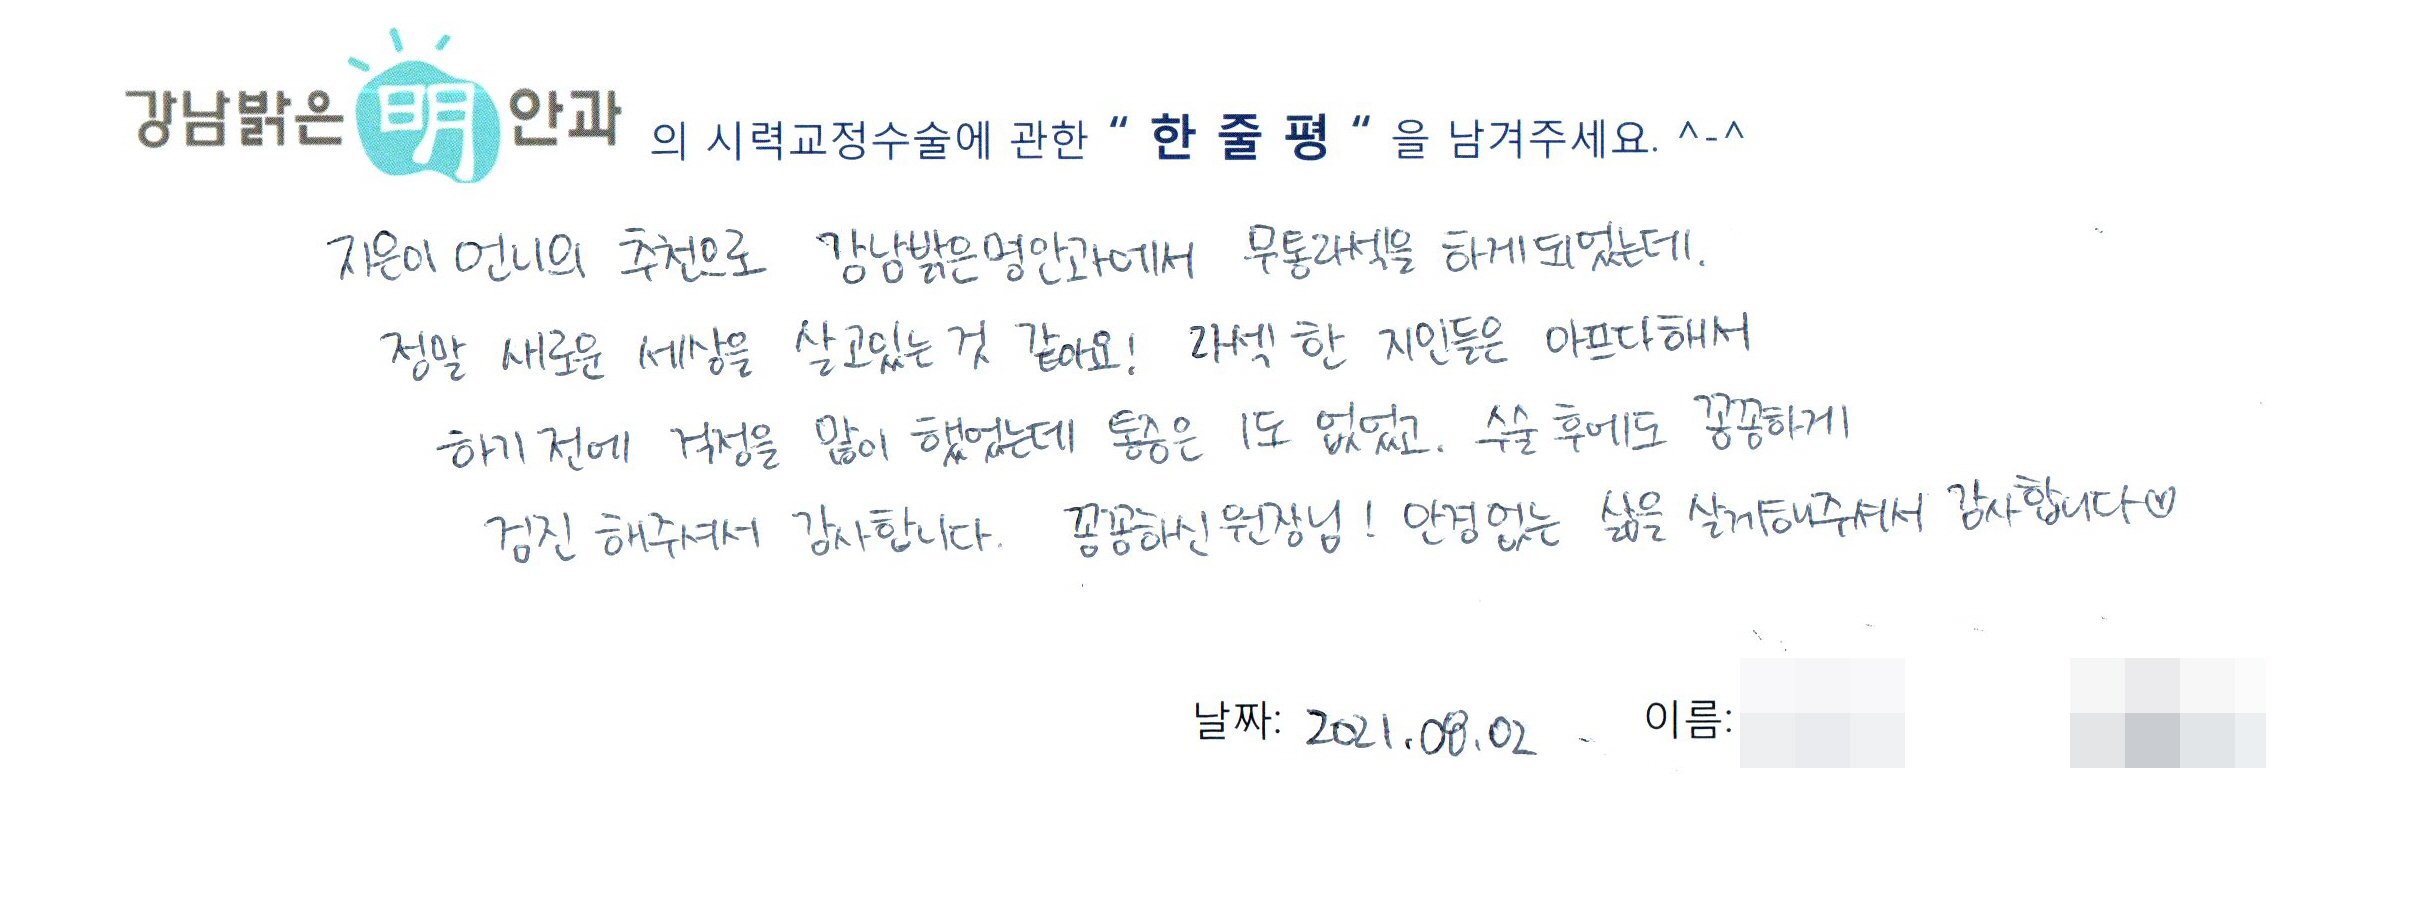 강남밝은明안과 의 시력교정수술에 관한 “ 한 줄 평 “ 을 남겨주세요. ^-^
지은이 언니의 추천으로 강남밝은명안과에서 무통라섹을 하게되었는데.
정말 새로운 세상을 살고있는 것 같아요! 라섹 한 지인들은 아프다해서
하기 전에 걱정을 많이 했었는데 통증은 1도 없었고. 수술 후에도 꽁꽁하게
검진 해주셔서 감사합니다. 꽁꽁하신 원장님! 안경없는 삶을 살게해주셔서 감사합니다♡
날짜: 2021.08.02 이름: